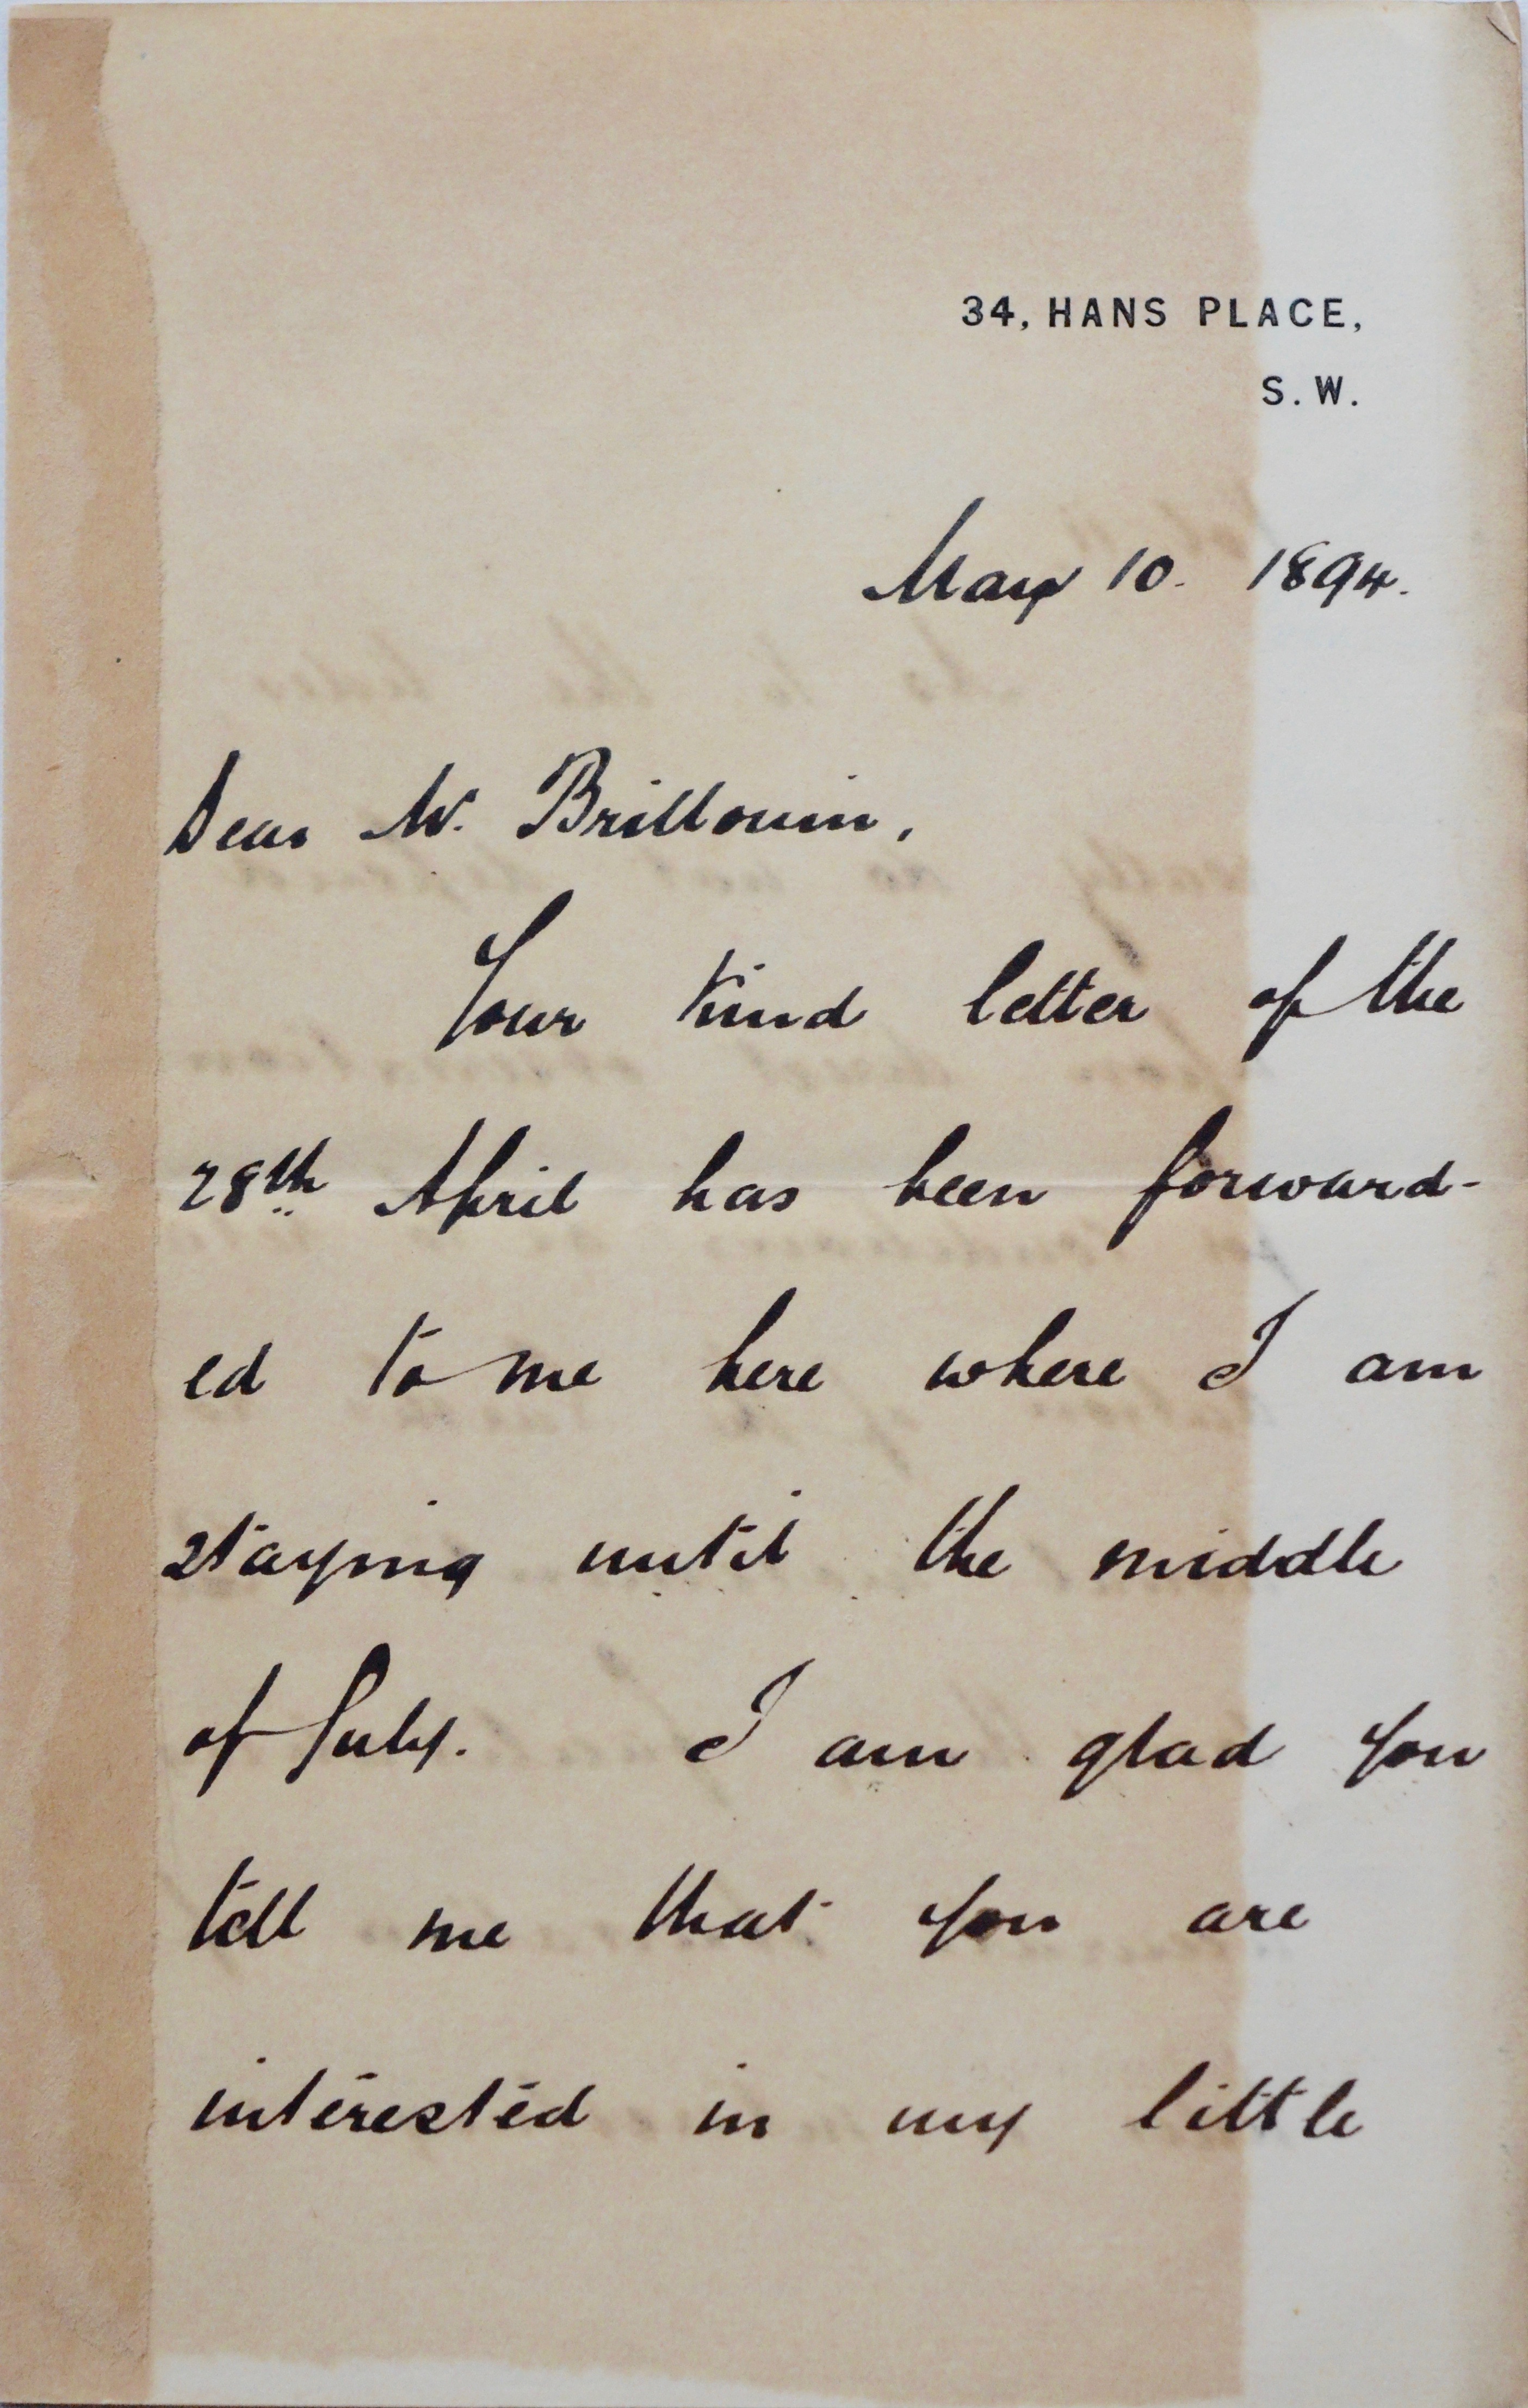 34, HANS PLACE,
S. W.
May 10. 1894.
Dear M. Brillouin,
Your kind letter of the
28th April has been forward-
ed to me here where I am
staying until the middle
of July. I am glad you
tell me that you are
interested in my little